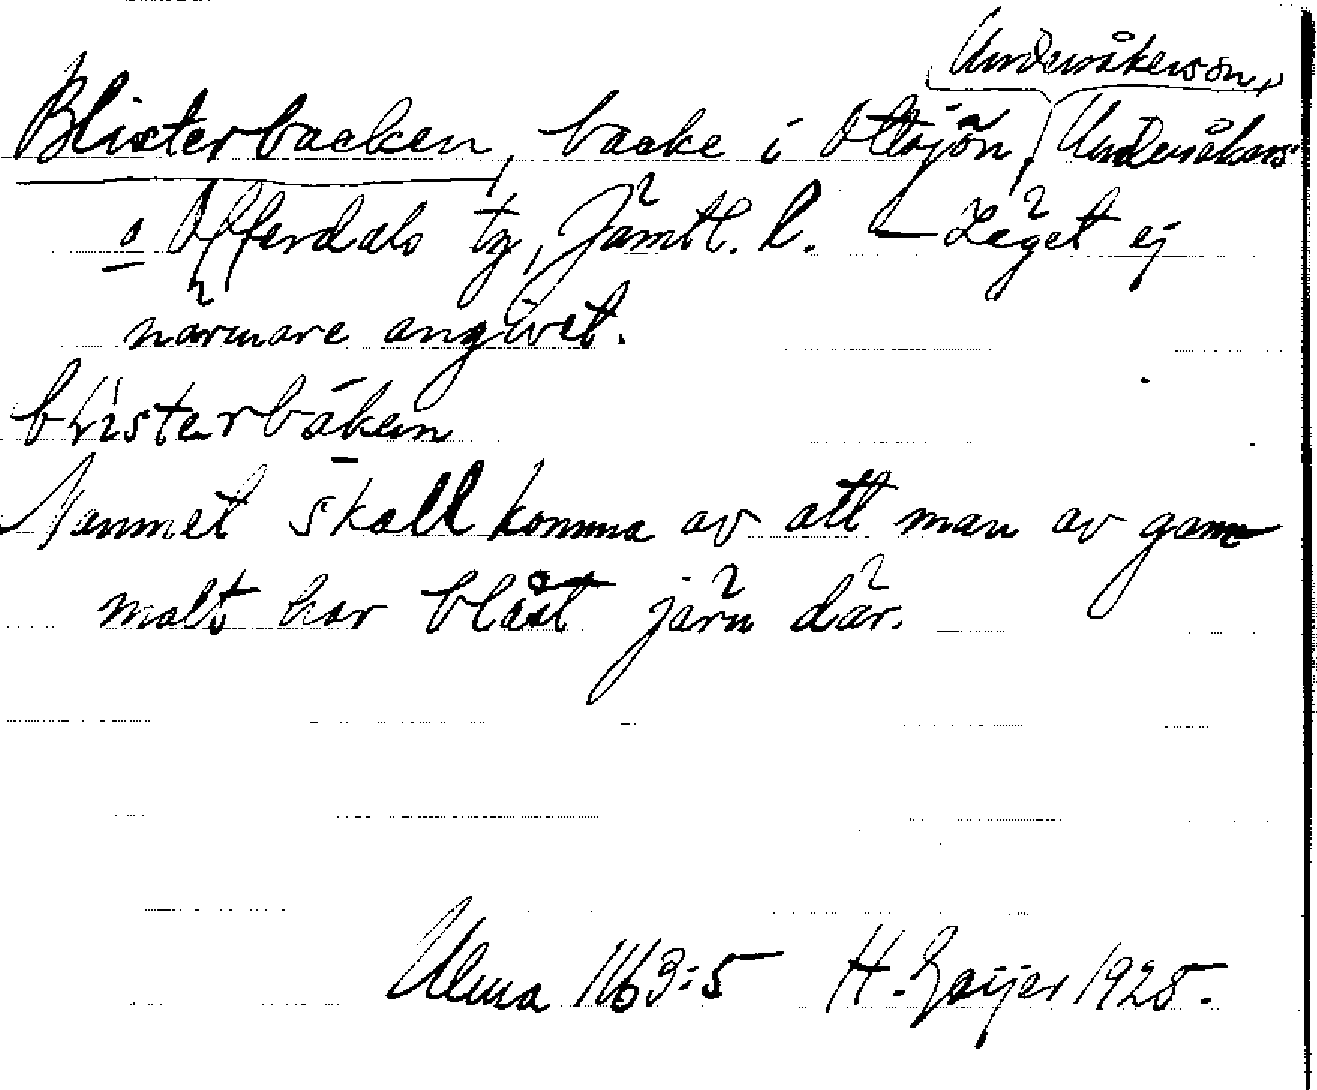 Undersåkers sn,
Blisterbacken, backe i Ottsjön, Undersåkers
o Offerdals tg, Jämtl. l. – Läget ej
närmare angivet.
blisterbaken
Namnet skall komma av att man av gam
malt har blåst järn där.
Ulma 1163:5 H. Geijer 1925.